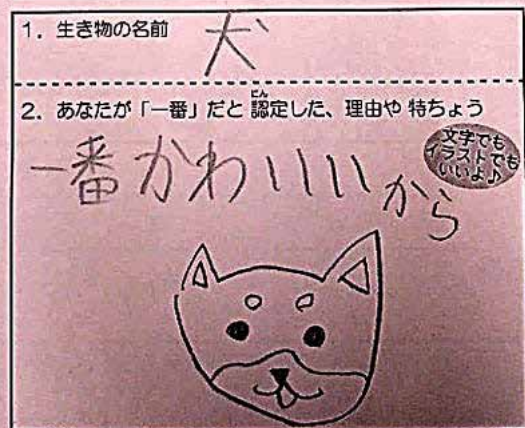 1. 生き物の名前
犬
2. あなたが「一番」だと認定した、理由や 特ちょう
にん
文字でも
イラストでも
いいよ♪
一番かわいいいから